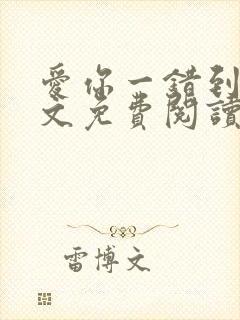 愛你一錯到
文免費閱讀
雷博文